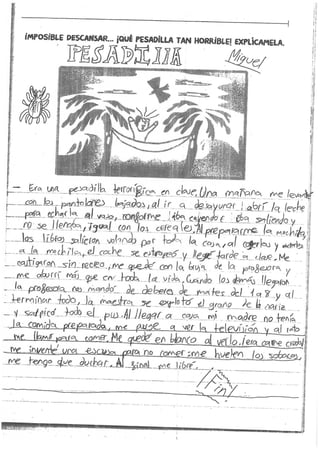 IMPOSIBLE DESCANSAR... ¡QUÉ PESADILLA TAN HORRIBLE! EXPLÍCAMELA.
Miguel
PESADIlla
- Era una pesadilla terrorífica en clave. Una mañana me levante
con los pantalones bajados, al ir a desayunar! abrí la leche
para echarla al vaso, conforme iba cayendo e iba saliendo y
no se llenaba, igual con los cereales. Al prepararme la mochila,
los libros salieron volando por toda la casa, al cogerlos y meterlos
a la mochila, el coche se estropeó y llegé tarde a clase. Me
castigaron sin recreo, me quedé con la bruja de la profesora y
me aburrí más que en toda la vida. Cuando los demás llegaron
la profesora nos mandó de deberes de mates del 1 a 8 y al
terminar todo, la maestra se explotó el grano de la nariz
y salpicó todo el pus. Al llegar a casa mi madre no tenía
la comida preparada, me puse a ver la televisión y al rato
me llamó para comer. Me quedé en blanco al verlo. ¡era carne cruda!
me inventé una escusa para no comer: me huelen los sobacos,
me tengo que duchar. Al final me libré.
Fin